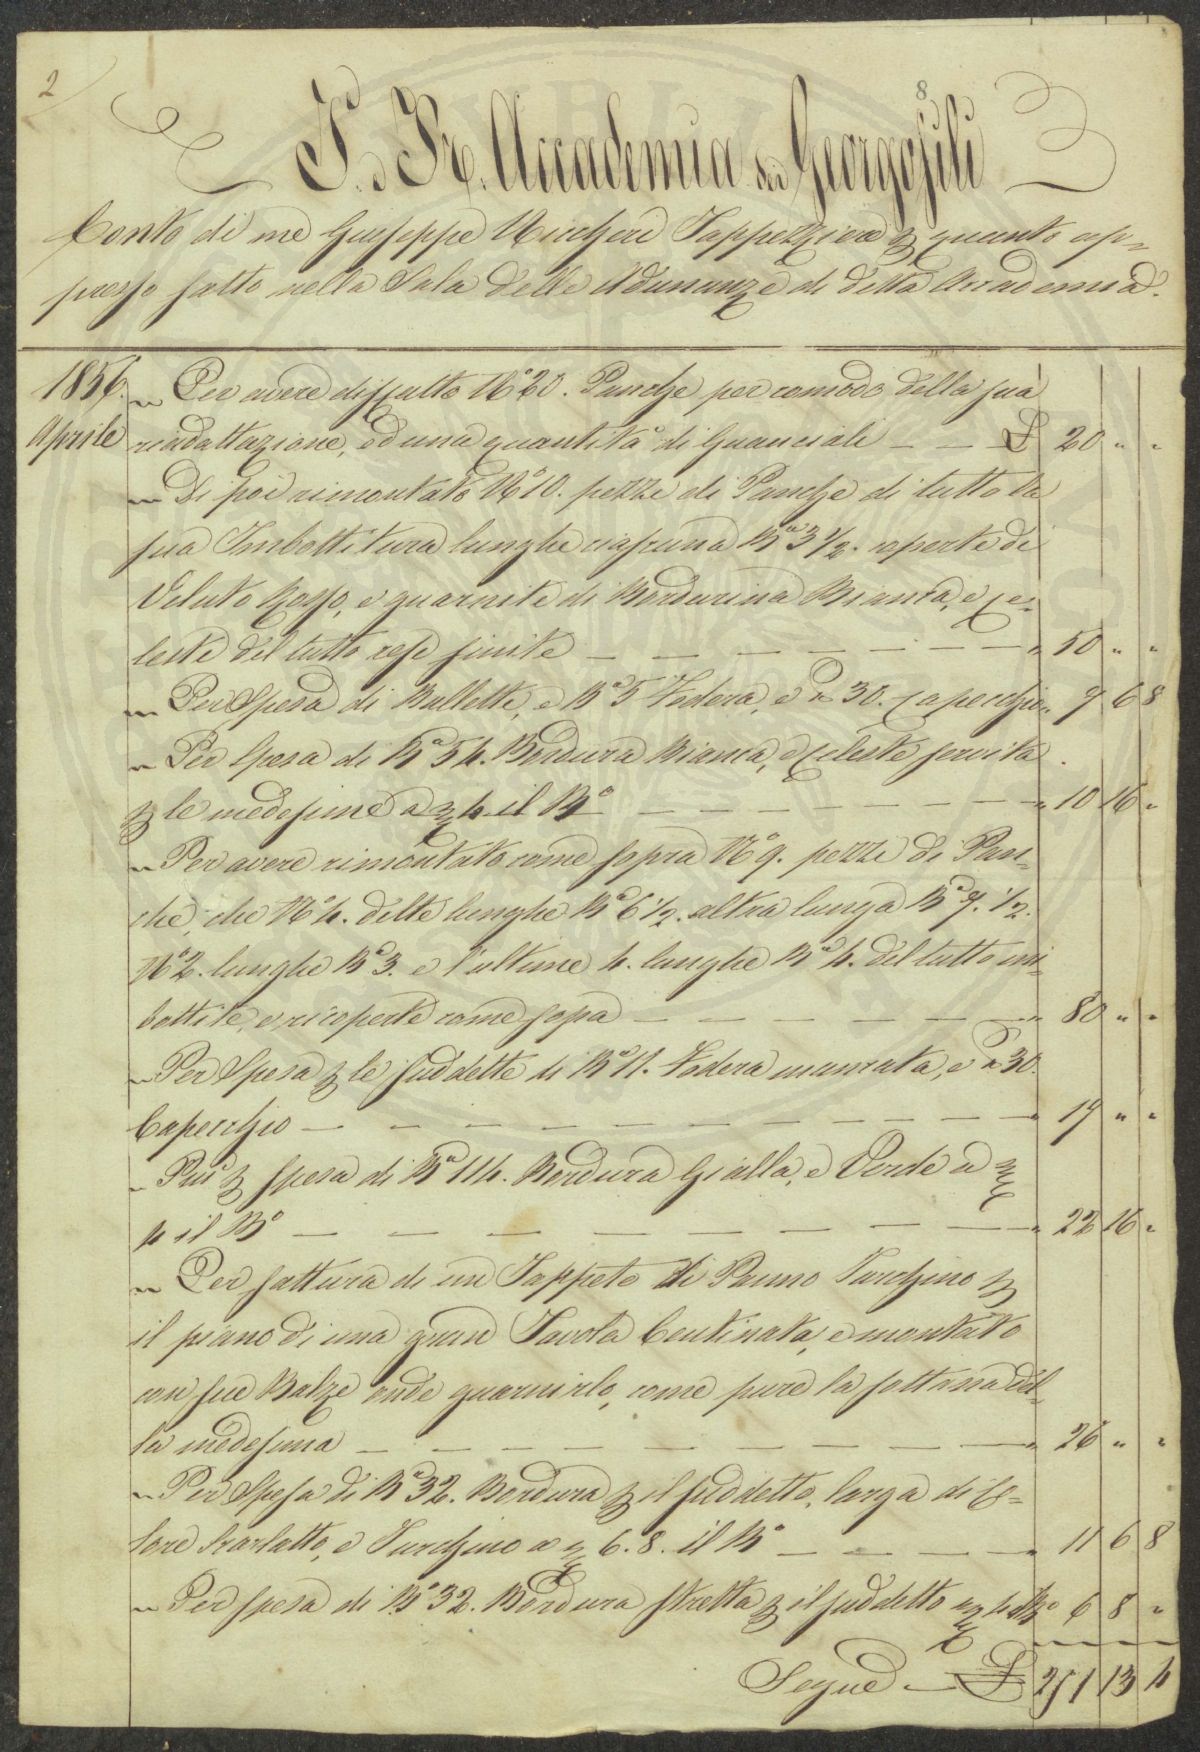 2
8
I. e R. Accademia dei Georgofili
Conto di me Giuseppe Ricchieri Tappezziere per quanto ap-
presso fatto nella Sala delle Adunanze di detta Accademia.
1856. „ Per avere disfatto N° 20. Panche per comodo della sua
Aprile riadattazione, ed una quantità di Guanciali — — £ 20 „ „
„ Di poi rimontato N° 10. pezzi di Panche di tutto la
sua Imbottitura lunghe ciascuna Ba 3 1/2. coperte di
Veluto Rosso, e guarnite di Bordurina Bianca, e ce-
leste del tutto rese finite — — — — — — — „ 50 „ „
„ Per Spesa di Bullette, e Ba 5 Fodera, e Pa 30. Capecchio „ 7 6 8
„ Per Spesa di Ba 54. Bordura Bianca, e Celeste servita
per le medesime a 4 il Bo — — — — — — — „ 10 16 „
„ Per avere rimontato come sopra N° 9. pezzi di Pan-
che, che N° 4. delle lunghe Ba 6 1/2. altra lunga Ba 7. 1/2.
N° 2. lunghe Ba 3. e l'ultime 4. lunghe Ba 4. del tutto im-
bottite, e ricoperte come sopa — — — — — — „ 80 „ „
„ Per Spesa per le suddette di Ba 11. Fodera mancata, e Pa 30.
Capecchio — — — — — — — — — — „ 17 „ „
„ Più per spesa di Ba 114. Bordura Gialla, e Verde a
4 il Bo — — — — — — — — „ 22 16 „
„ Per fattura di un Tappeto di Panno Turchino per
il piano di una gran Tavola Centinata, e montato
con sue Balze onde guarnirlo, come pure la sottana del-
la medesima — — — — — — — — — „ 26 „ „
„ Per Spesa di Ba 32. Bordura per il suddetto, larga di Co-
lore Scarlatto, e Turchino a 6. 8. il Bo — — — — „ 11 6 8
„ Per spesa di Ba 32. Bordura stretta per il suddetto a 4 il Bo 6 8 „
Segue — £ 251 13 4